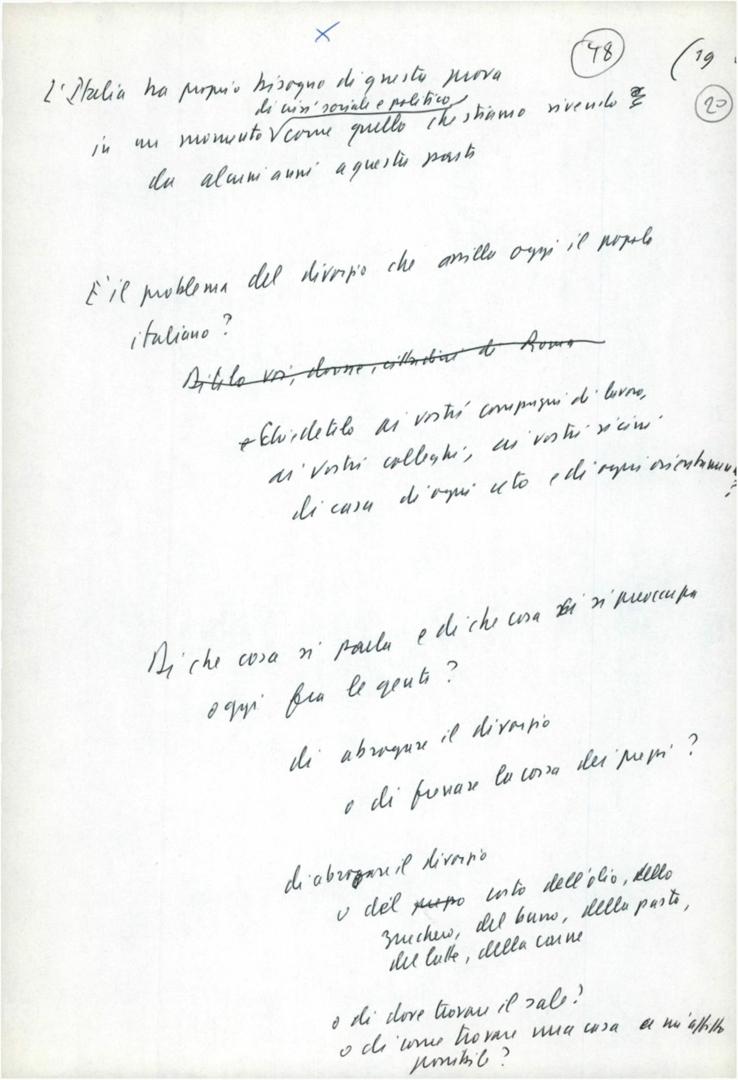 48
(19
20
L'Italia ha proprio bisogno di questa prova
di crisi sociale e politica
in un momento come quello che stiamo vivendo
da alcuni anni a questa parte
È il problema del divorzio che assilla oggi il popolo
italiano?
Ditelo voi, donne, cittadini di Roma
Chiedetelo ai vostri compagni di lavoro,
ai vostri colleghi, ai vostri vicini
di casa di ogni ceto e di ogni orientamento
?
Di che cosa si parla e di che cosa si preoccupa
oggi fra le genti?
di abrogare il divorzio
o di frenare la corsa dei prezzi?
di abrogare il divorzio
o del prezzo costo dell'olio, dello
zucchero, del burro, della pasta,
del latte, della carne
o di dove trovare il sale?
o di come trovare una casa a un affitto
possibile?